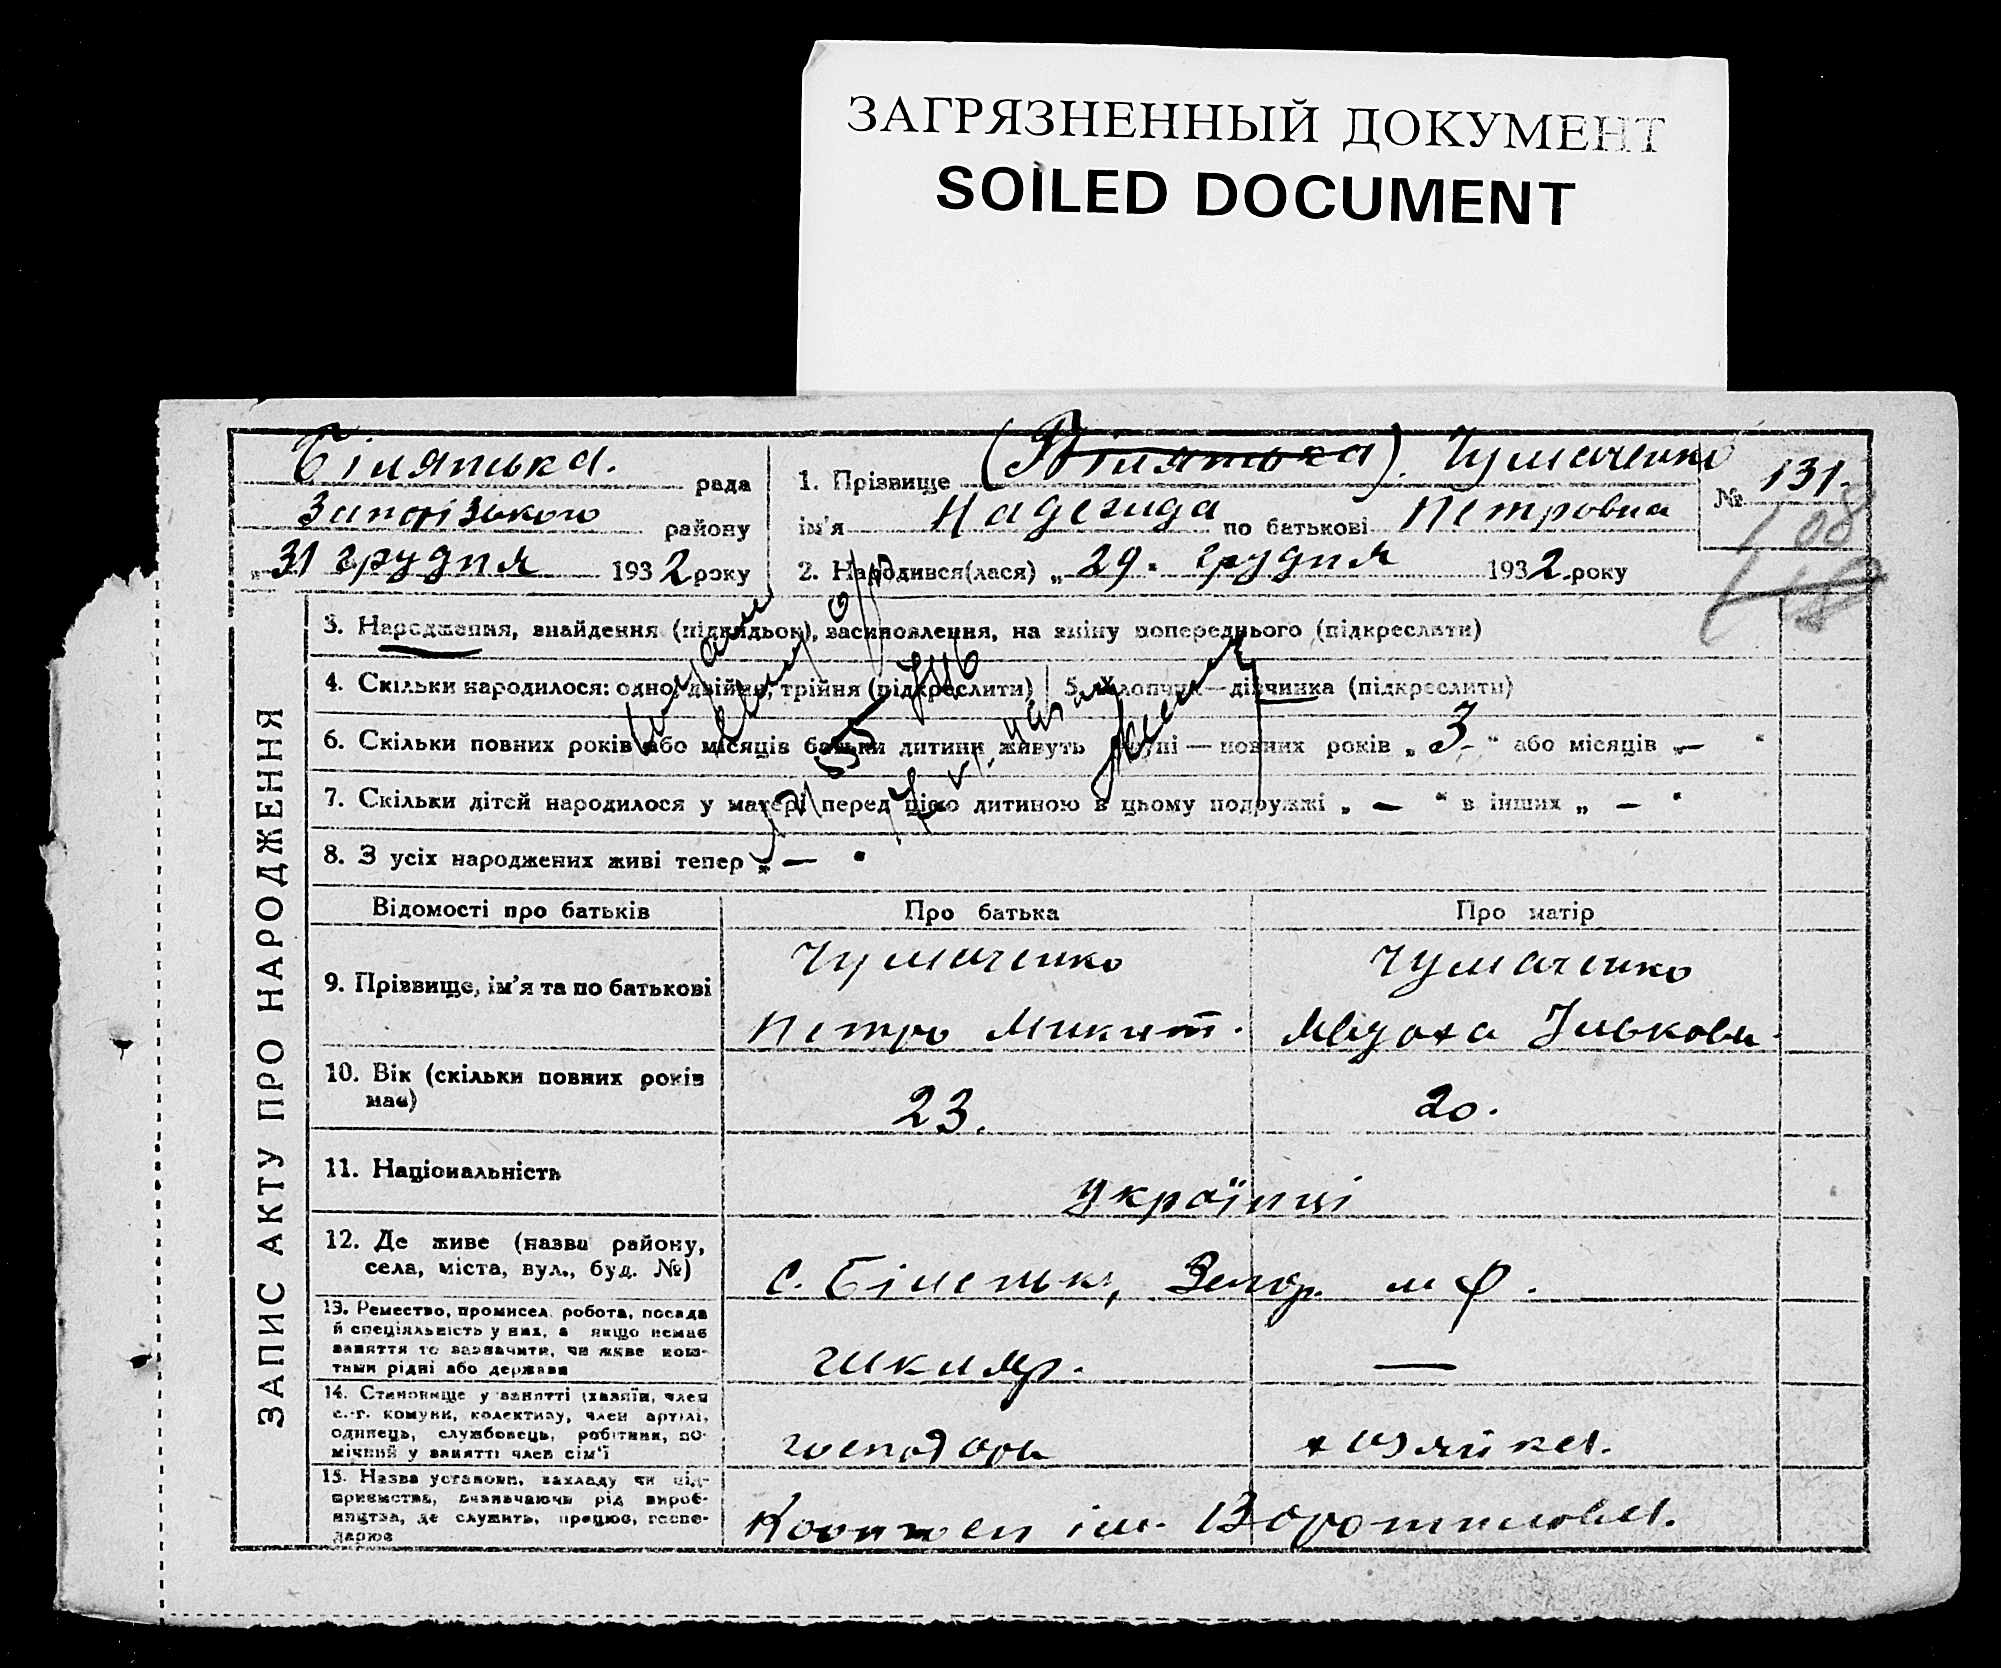 ЗАГРЯЗНЕННЫЙ ДОКУМЕНТ
SOILED DOCUMENT
Білятська. рада
Запорізького району
„31 грудня 1932 року
1. Прізвище (Білятська). Чумаченко
ім'я Надегида по батькові Петровна
2. Народився(лася) „29. грудня 1932. року
№ 131.
108
118
ЗАПИС АКТУ ПРО НАРОДЖЕННЯ
3. Народження, знайдення (підкидьок), засиновлення, на зміну попереднього (підкреслити)
4. Скільки народилося: одно, двійня, трійня (підкреслити) 5. Хлопчик—дівчинка (підкреслити)
6. Скільки повних років або місяців батьки дитини живуть вкупі — повних років „3.“ або місяців „—“
7. Скільки дітей народилося у матері перед цією дитиною в цьому подружжі „—“ в інших „—“
8. З усіх народжених живі тепер „—“
Відомості про батьків Про батька Про матір
9. Прізвище, ім'я та по батькові
Чумаченко Чумаченко
Петро Микит.
10. Вік (скільки повних років має) 23. 20.
11. Національність Українці
12. Де живе (назва району, села, міста, вул., буд. №)
13. Ремество, промисел, робота, посада й спеціяльність у них, а якщо немає заняття то зазначити, чи живе коштами рідні або держави
школяр. —
14. Становище у занятті (хазяїн, член с.-г. комуни, колективу, член артілі, одинець, службовець, робітник, помічний у занятті член сім'ї
господарь хозяйка.
15. Назва установи, закладу чи підприємства, зазначаючи рід виробництва, де служить, працює, господарює
ім. Ворошилова.